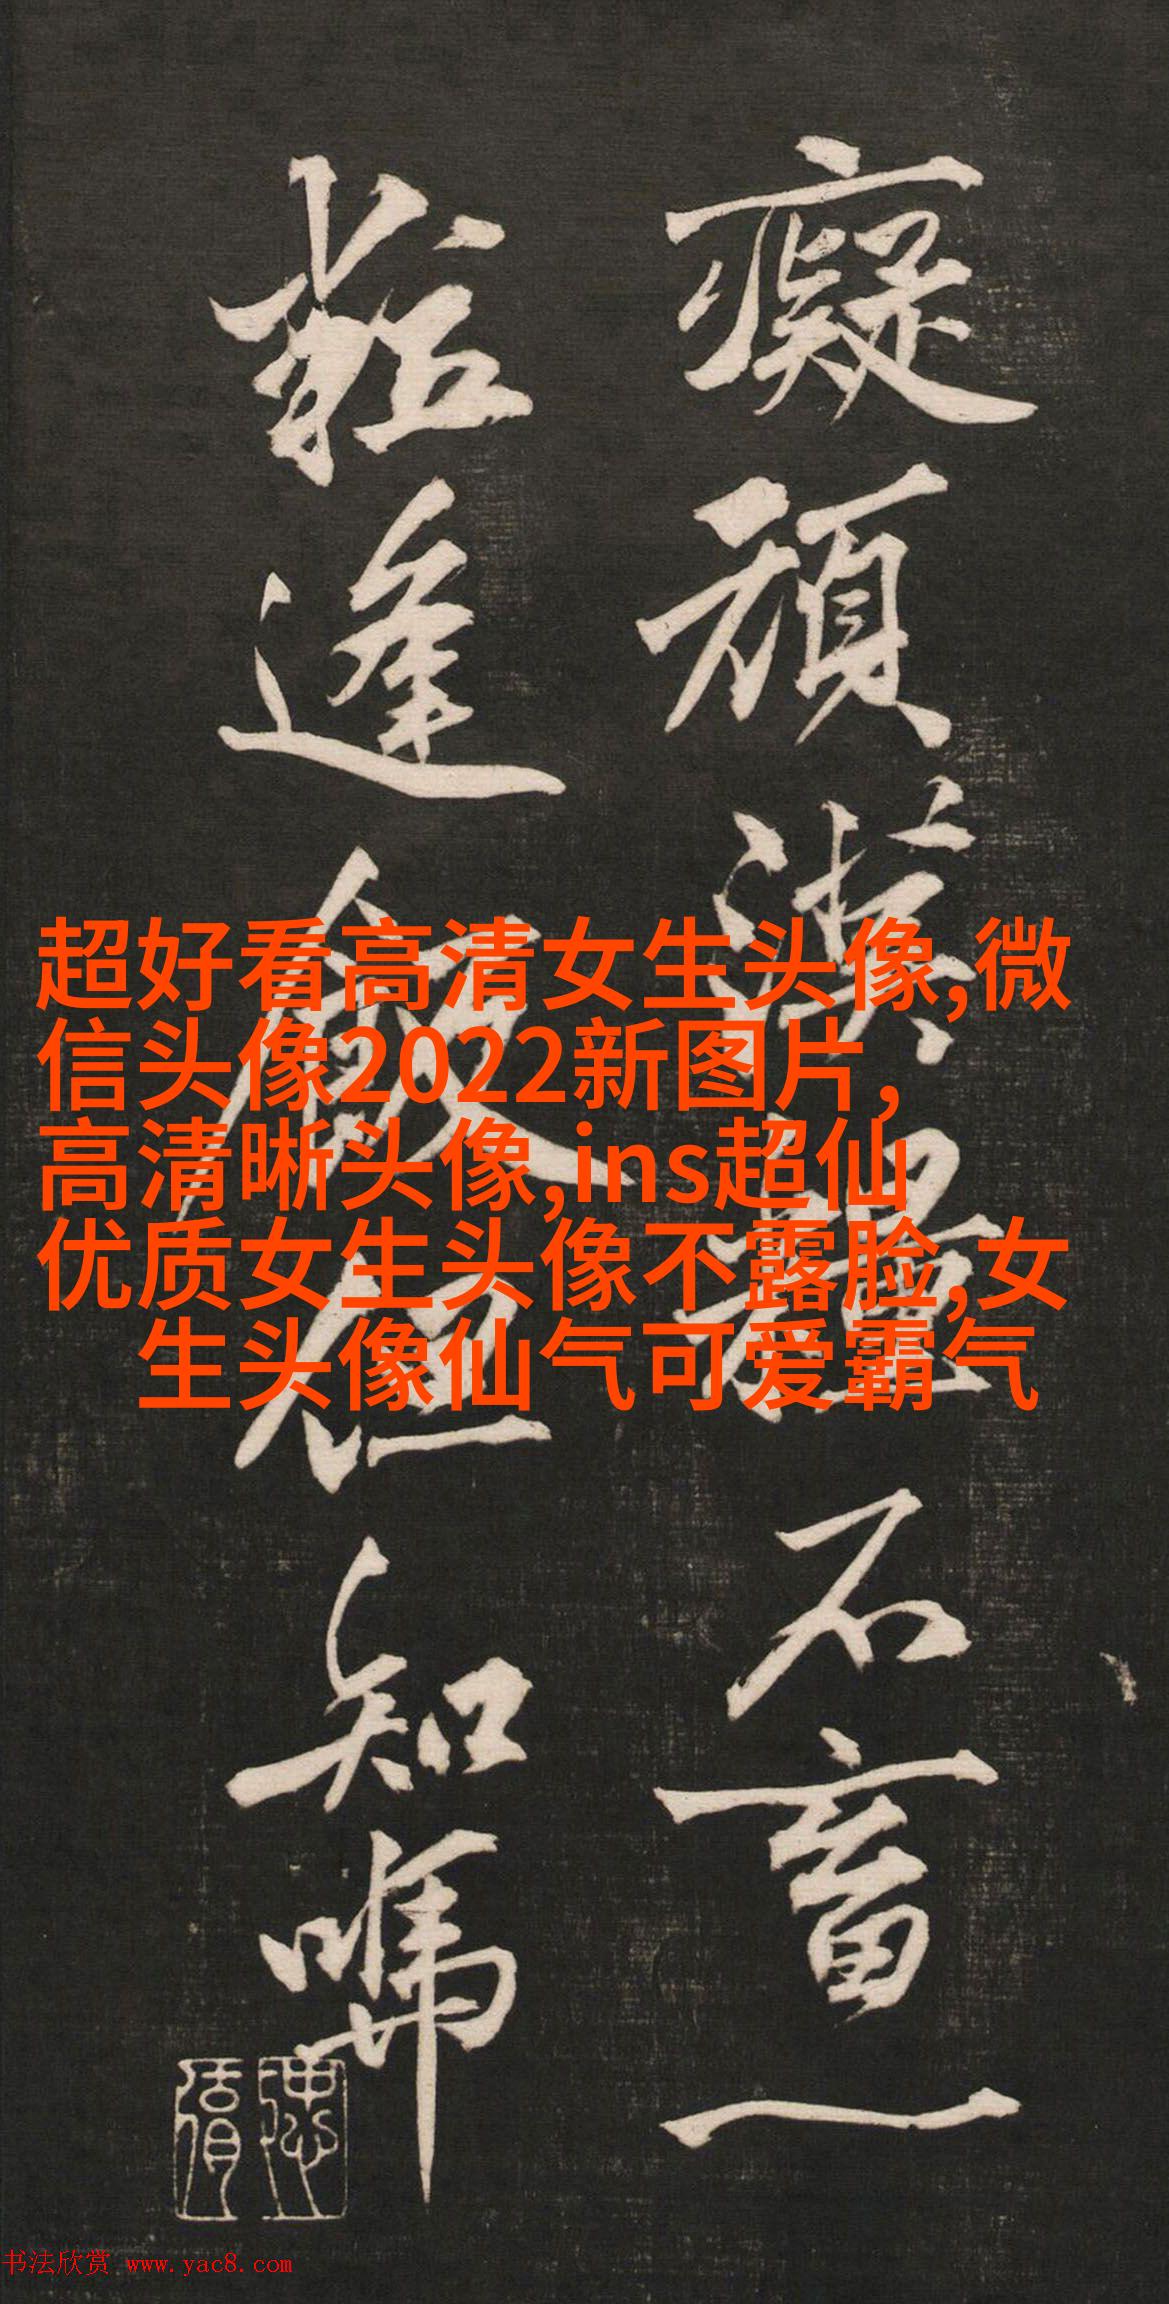 癡頑漢石畜一
逢飯但知
超好看高清女生头像,微
信头像2022新图片,
高清晰头像,ins超仙
优质女生头像不露脸,女
生头像仙气可爱霸气
书法欣赏 www.yac8.com